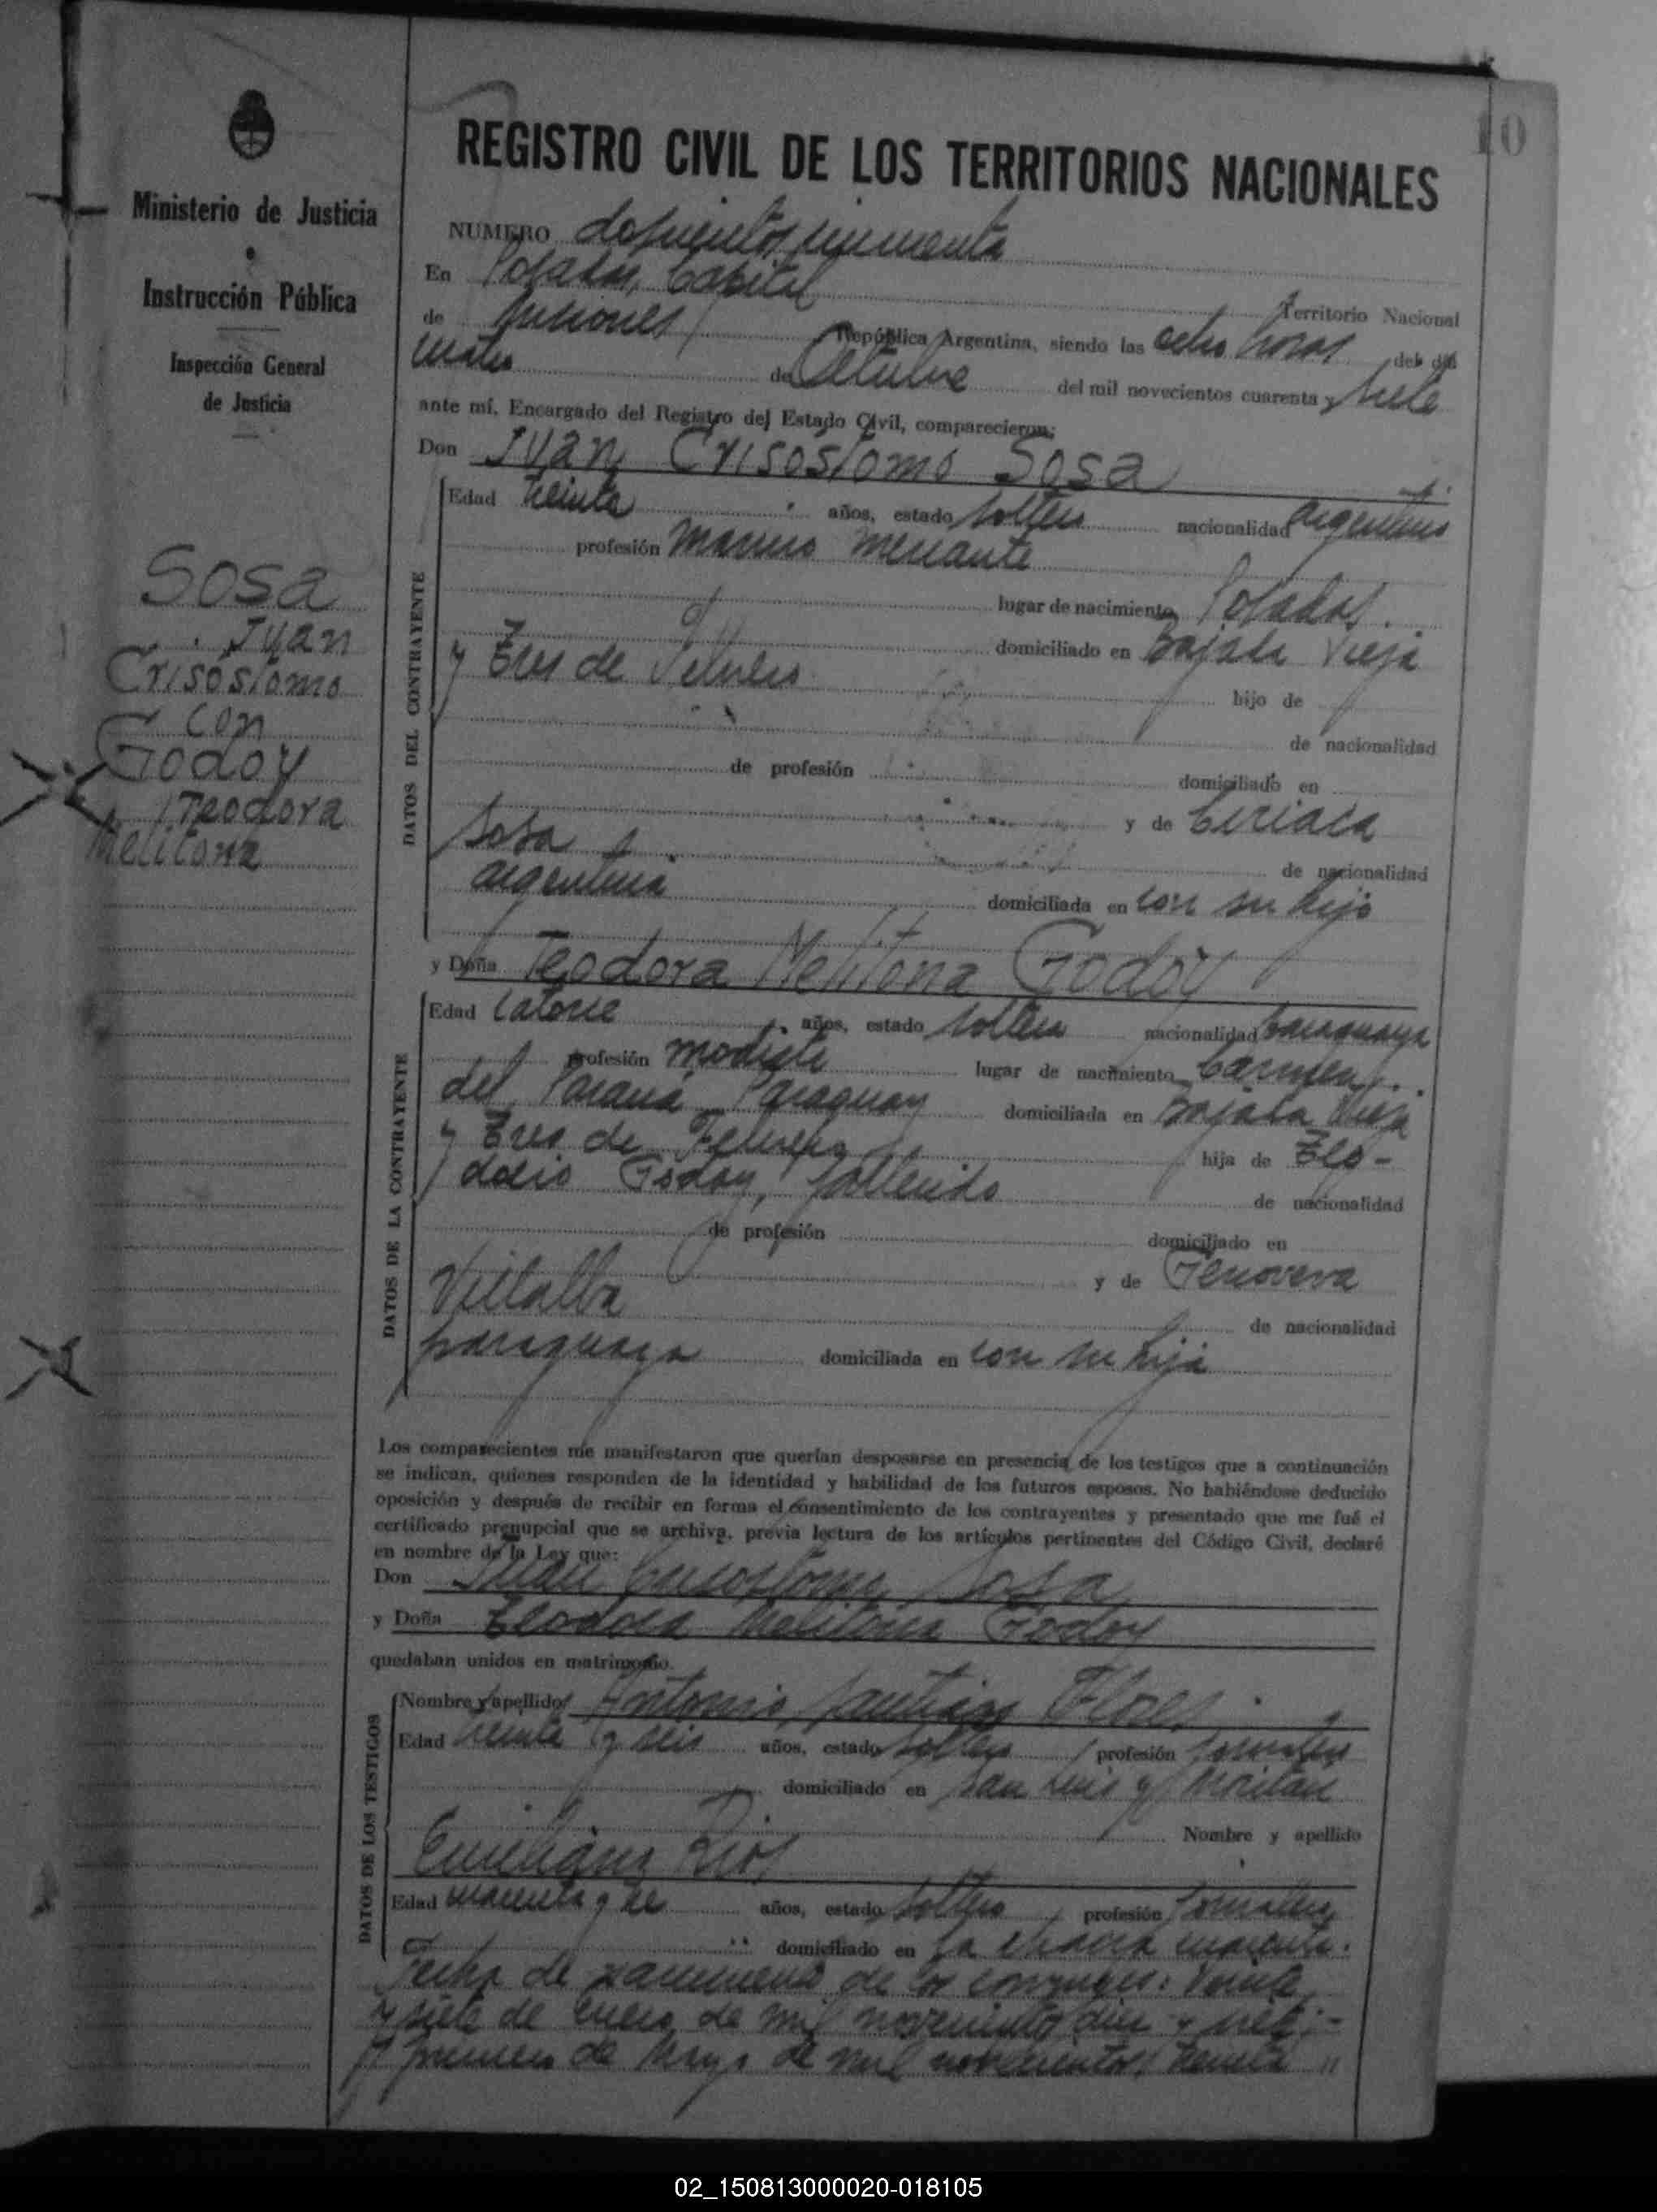 10
REGISTRO CIVIL DE LOS TERRITORIOS NACIONALES
Ministerio de Justicia
Instrucción Pública
Inspección General
de Justicia
Sosa
Juan
Crisóstomo
con
Godoy
Teodora
Melitona
NUMERO doscientos cincuenta
En Posadas, Capital
Territorio Nacional
de Misiones
República Argentina, siendo las ocho horas del día
cuatro de Octubre del mil novecientos cuarenta y siete
ante mí, Encargado del Registro del Estado Civil, comparecieron:
Don Juan Crisóstomo Sosa
DATOS DEL CONTRAYENTE
Edad treinta años, estado soltero nacionalidad argentino
profesión marino mercante
lugar de nacimiento Posadas
domiciliado en Bajada Vieja
y Tres de Febrero
hijo de
de nacionalidad
de profesión domiciliado en
y de Ciriaca
Sosa
de nacionalidad
argentina domiciliada en con su hijo
y Doña Teodora Melitona Godoy
DATOS DE LA CONTRAYENTE
Edad catorce años, estado soltera nacionalidad paraguaya
profesión modista lugar de nacimiento Carmen
del Paraná, Paraguay domiciliada en Bajada Vieja
y Tres de Febrero
hija de Teo-
docio Godoy, fallecido
de nacionalidad
de profesión domiciliado en
y de Genoveva
Villalba
de nacionalidad
paraguaya domiciliada en con su hija
Los comparecientes me manifestaron que querían desposarse en presencia de los testigos que a continuación
se indican, quienes responden de la identidad y habilidad de los futuros esposos. No habiéndose deducido
oposición y después de recibir en forma el consentimiento de los contrayentes y presentado que me fué el
certificado prenupcial que se archiva, previa lectura de los artículos pertinentes del Código Civil, declaré
en nombre de la Ley que:
Don Juan Crisóstomo Sosa
y Doña Teodora Melitona Godoy
quedaban unidos en matrimonio.
DATOS DE LOS TESTIGOS
Nombre y apellido Antonio Flores
Edad treinta y seis años, estado soltero profesión jornalero
domiciliado en San Luis y
Nombre y apellido
Emiliano Rios
Edad cuarenta y tres años, estado soltero profesión jornalero
domiciliado en la chacra cuarenta.
Fecha de nacimiento de los conyuges: veinte
y siete de Enero de mil novecientos diez y siete;-
y primero de Mayo de mil novecientos treinta "
02_150813000020-018105